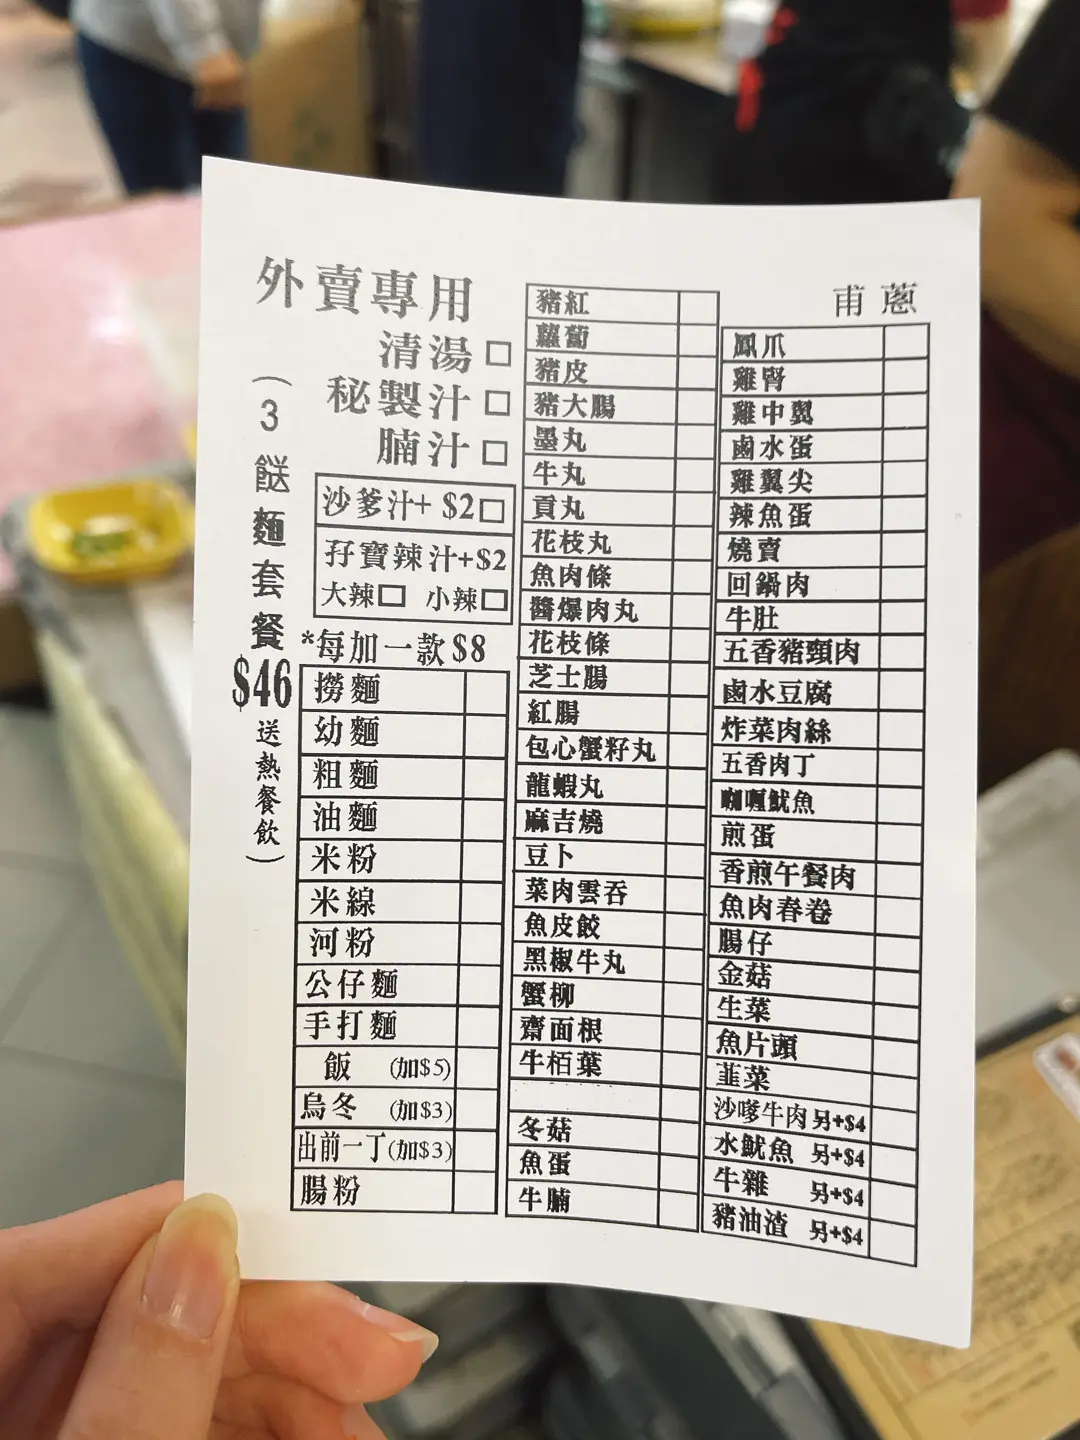 外賣專用
清湯
秘製汁
腩汁
(3餸麵套餐$46送熱餐飲)
沙爹汁+ $2
孖寶辣汁+$2
大辣 小辣
*每加一款 $8
撈麵
幼麵
粗麵
油麵
米粉
米線
河粉
公仔麵
手打麵
飯 (加$5)
烏冬 (加$3)
出前一丁(加$3)
腸粉
豬紅
蘿蔔
豬皮
豬大腸
墨丸
牛丸
貢丸
花枝丸
魚肉條
醬爆肉丸
花枝條
芝士腸
紅腸
包心蟹籽丸
龍蝦丸
麻吉燒
豆卜
菜肉雲吞
魚皮餃
黑椒牛丸
蟹柳
齋面根
牛栢葉
冬菇
魚蛋
牛腩
甫 蔥
鳳爪
雞腎
雞中翼
鹵水蛋
雞翼尖
辣魚蛋
燒賣
回鍋肉
牛肚
五香豬頸肉
鹵水豆腐
炸菜肉絲
五香肉丁
咖喱魷魚
煎蛋
香煎午餐肉
魚肉春卷
腸仔
金菇
生菜
魚片頭
韮菜
沙嗲牛肉 另+$4
水魷魚 另+$4
牛雜 另+$4
豬油渣 另+$4